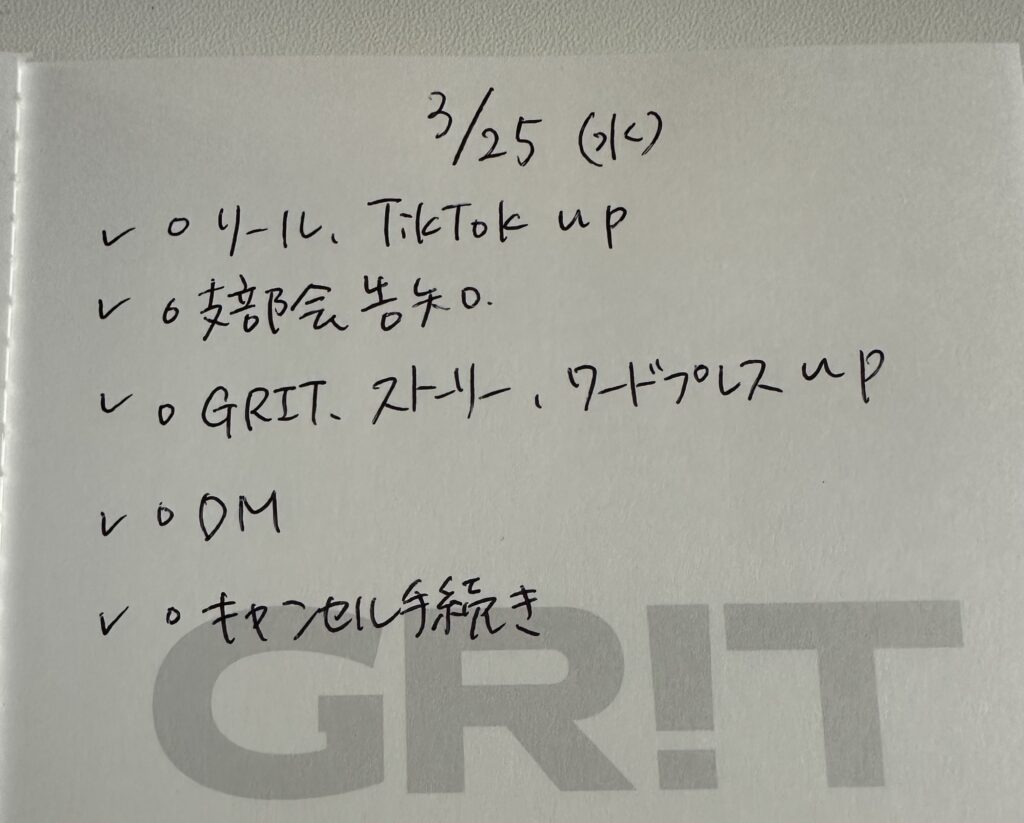 3/25 (水)
✓ ○ リール、TikTok up
✓ ○ 支部会告知.
✓ ○ GRIT、ストーリー、ワードプレス up
✓ ○ DM
✓ ○ キャンセル手続き
GR!T